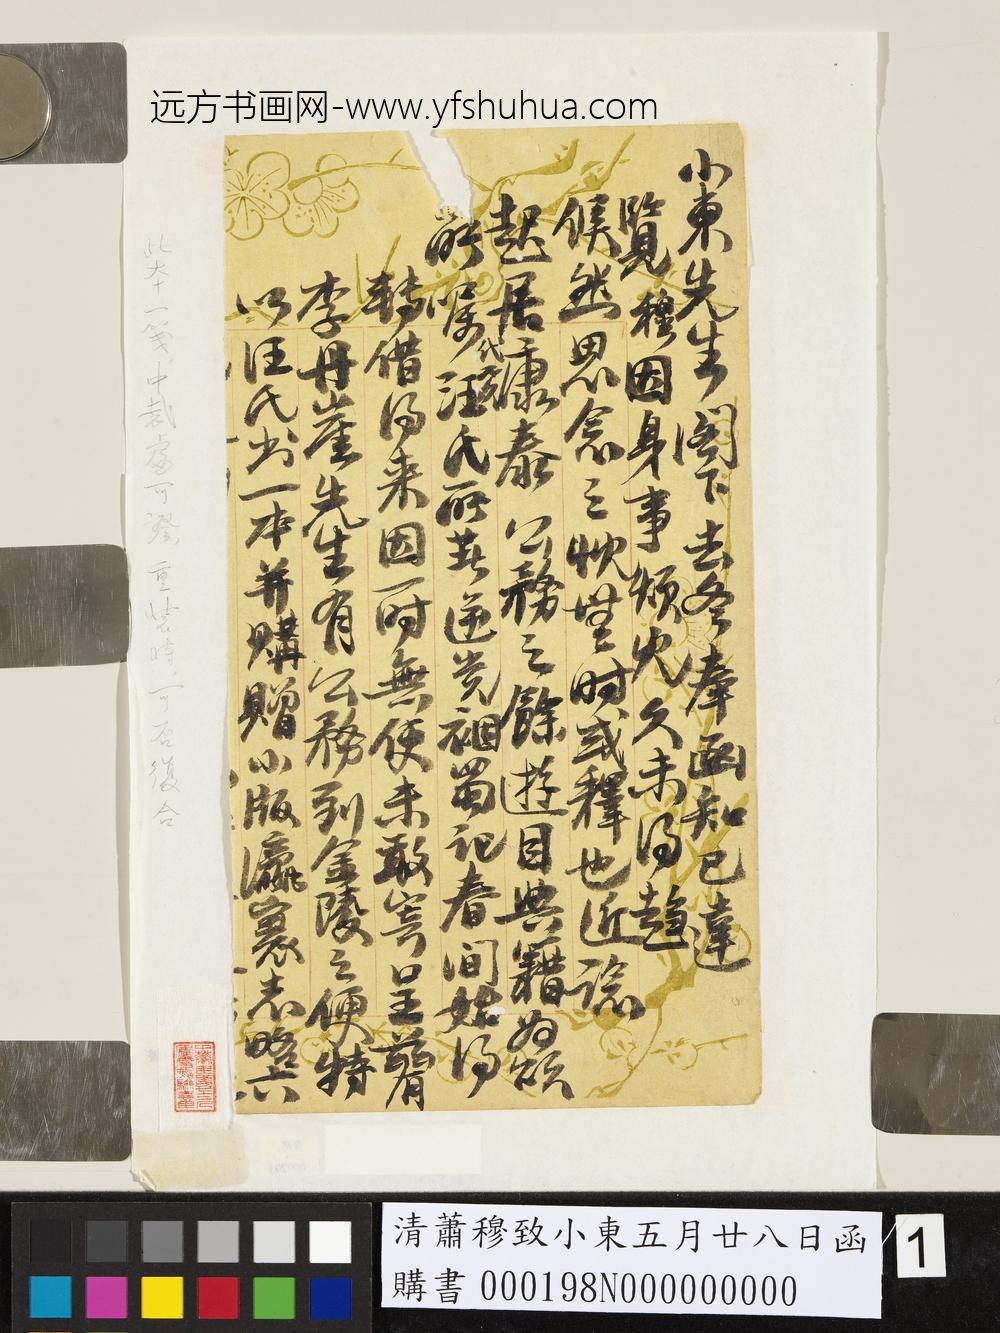 远方书画网-www.yfshuhua.com
小東先生閣下去冬奉函知已達
覽穆因身事煩冗久未得趨
候然思念之忱無时或釋也近諗
起居康泰公務之餘遊目典籍为頌
所嘱代𡨴汪氏所著逆党禍蜀记春间始得
轉借得来因一时無便未敢寄呈茲有
李丹崖先生有公務到金陵之便特
以汪氏书一本并購贈小版瀛寰志略六
此大十一箋中裁處可證重裝時可否復合
清蕭穆致小東五月廿八日函
購書 000198N000000000
1